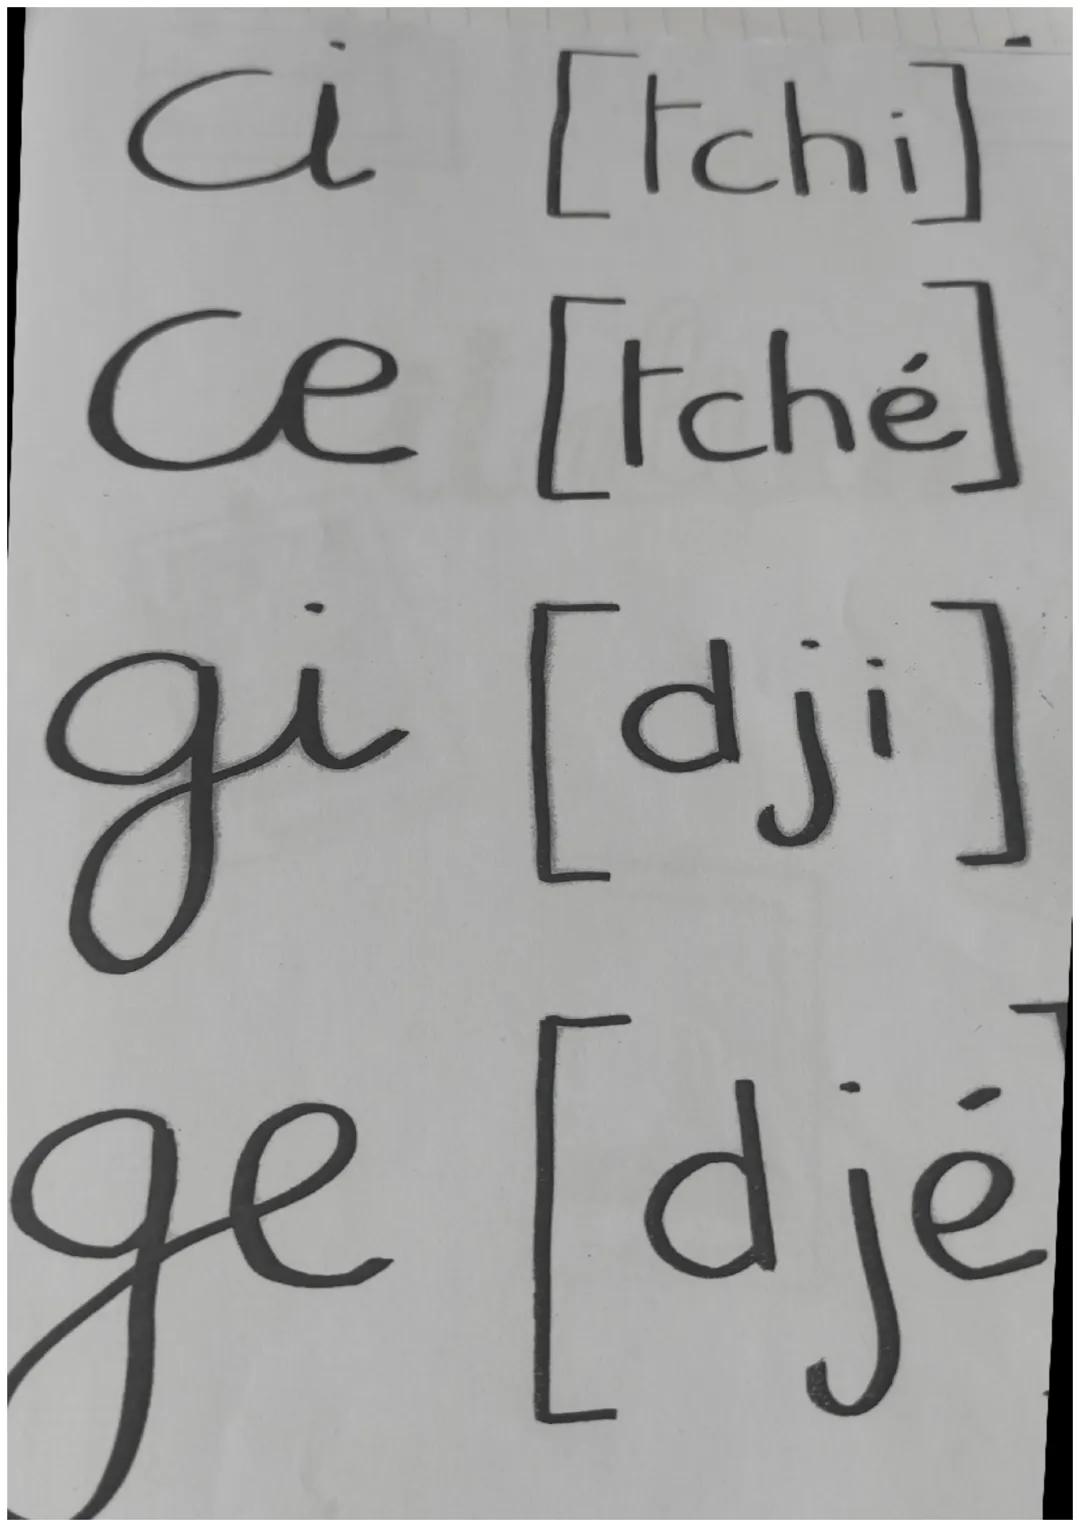 ci [tchi]
ce [tché]
gi [dji]
ge [djé]